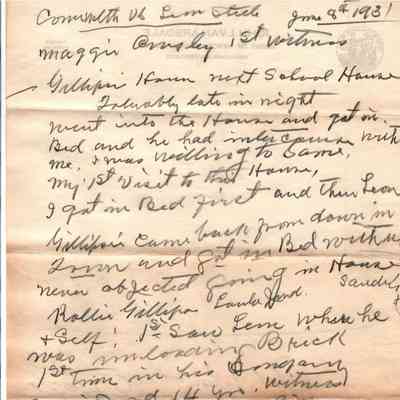 Comwelth vs Leon Steele June 8th 1931
Maggie Ousley 1st witness
Gillispie House next School House
Tolerably late in night
went into the House and got in
Bed and he had intercourse with
me, I was willing to same,
My 1st Visit to that House,
I got in Bed first and then Leon
Gillispie Came back from down in
Town and got in Bed with us
never objected going in House
Rollie Gillispie
& Self! 1st Saw Leon where he
was unloading Brick
1st time in his Company
14 yrs. witness